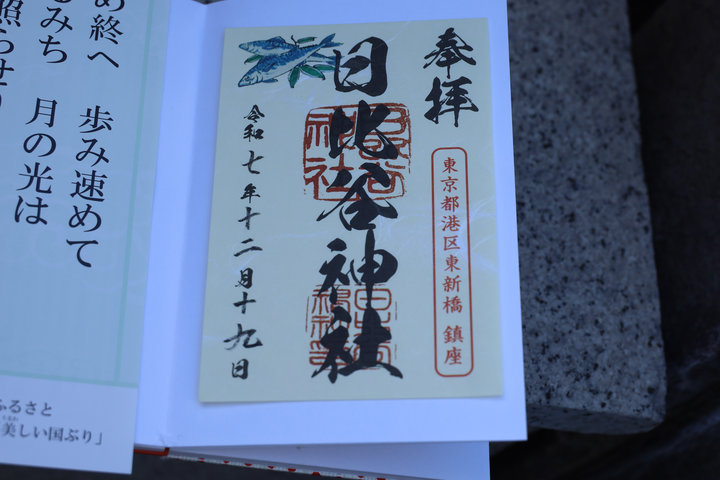 奉拝
東京都港区東新橋 鎮座
日比谷神社
令和七年十二月十九日
め終へ 歩み速めて
るみち 月の光は
照らせり
ふるさと
美しい国ぶり」